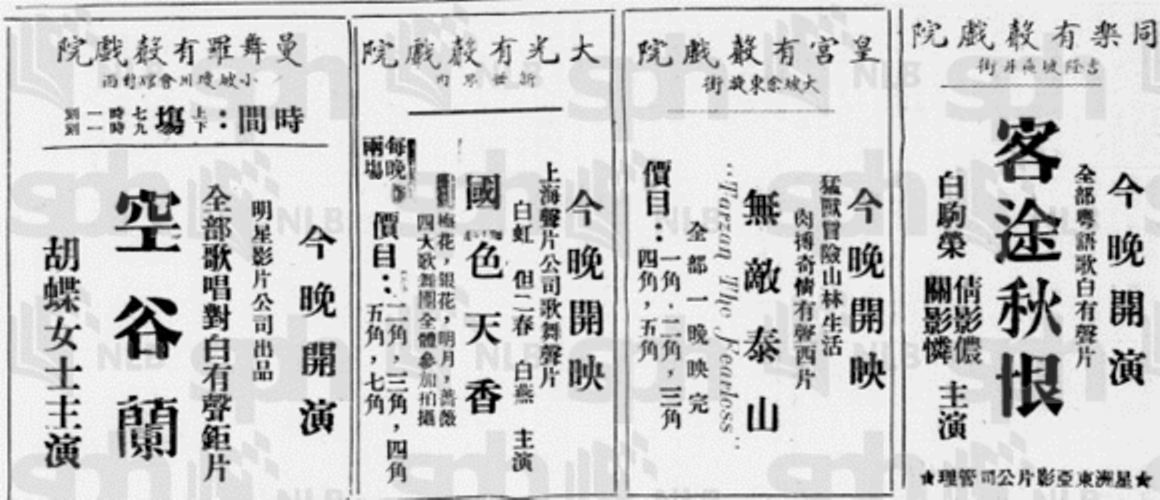 同樂有聲戲院
今晚開演
全部粵語歌白有聲片
客途秋恨
白駒榮
倩影儂
關影憐
主演
★星洲東亞影片公司管理★
皇宮有聲戲院
大坡余東旋街
今晚開映
猛獸冒險山林生活
肉搏奇情有聲西片
無敵泰山
"Tarzan The Fearless"
全部一晚映完
價目：一角，二角，三角
四角，五角
大光有聲戲院
新世界內
今晚開映
上海聲片公司歌舞聲片
白虹 但二春 白燕 主演
國色天香
梅花，銀花，明月，薔薇
四大歌舞團全體參加拍攝
價目：二角，三角，四角
五角，七角
每晚
兩塲
曼舞羅有聲戲院
小坡瓊州會館對面
時間：上下塲
今晚開演
明星影片公司出品
全部歌唱對白有聲鉅片
空谷蘭
胡蝶女士主演